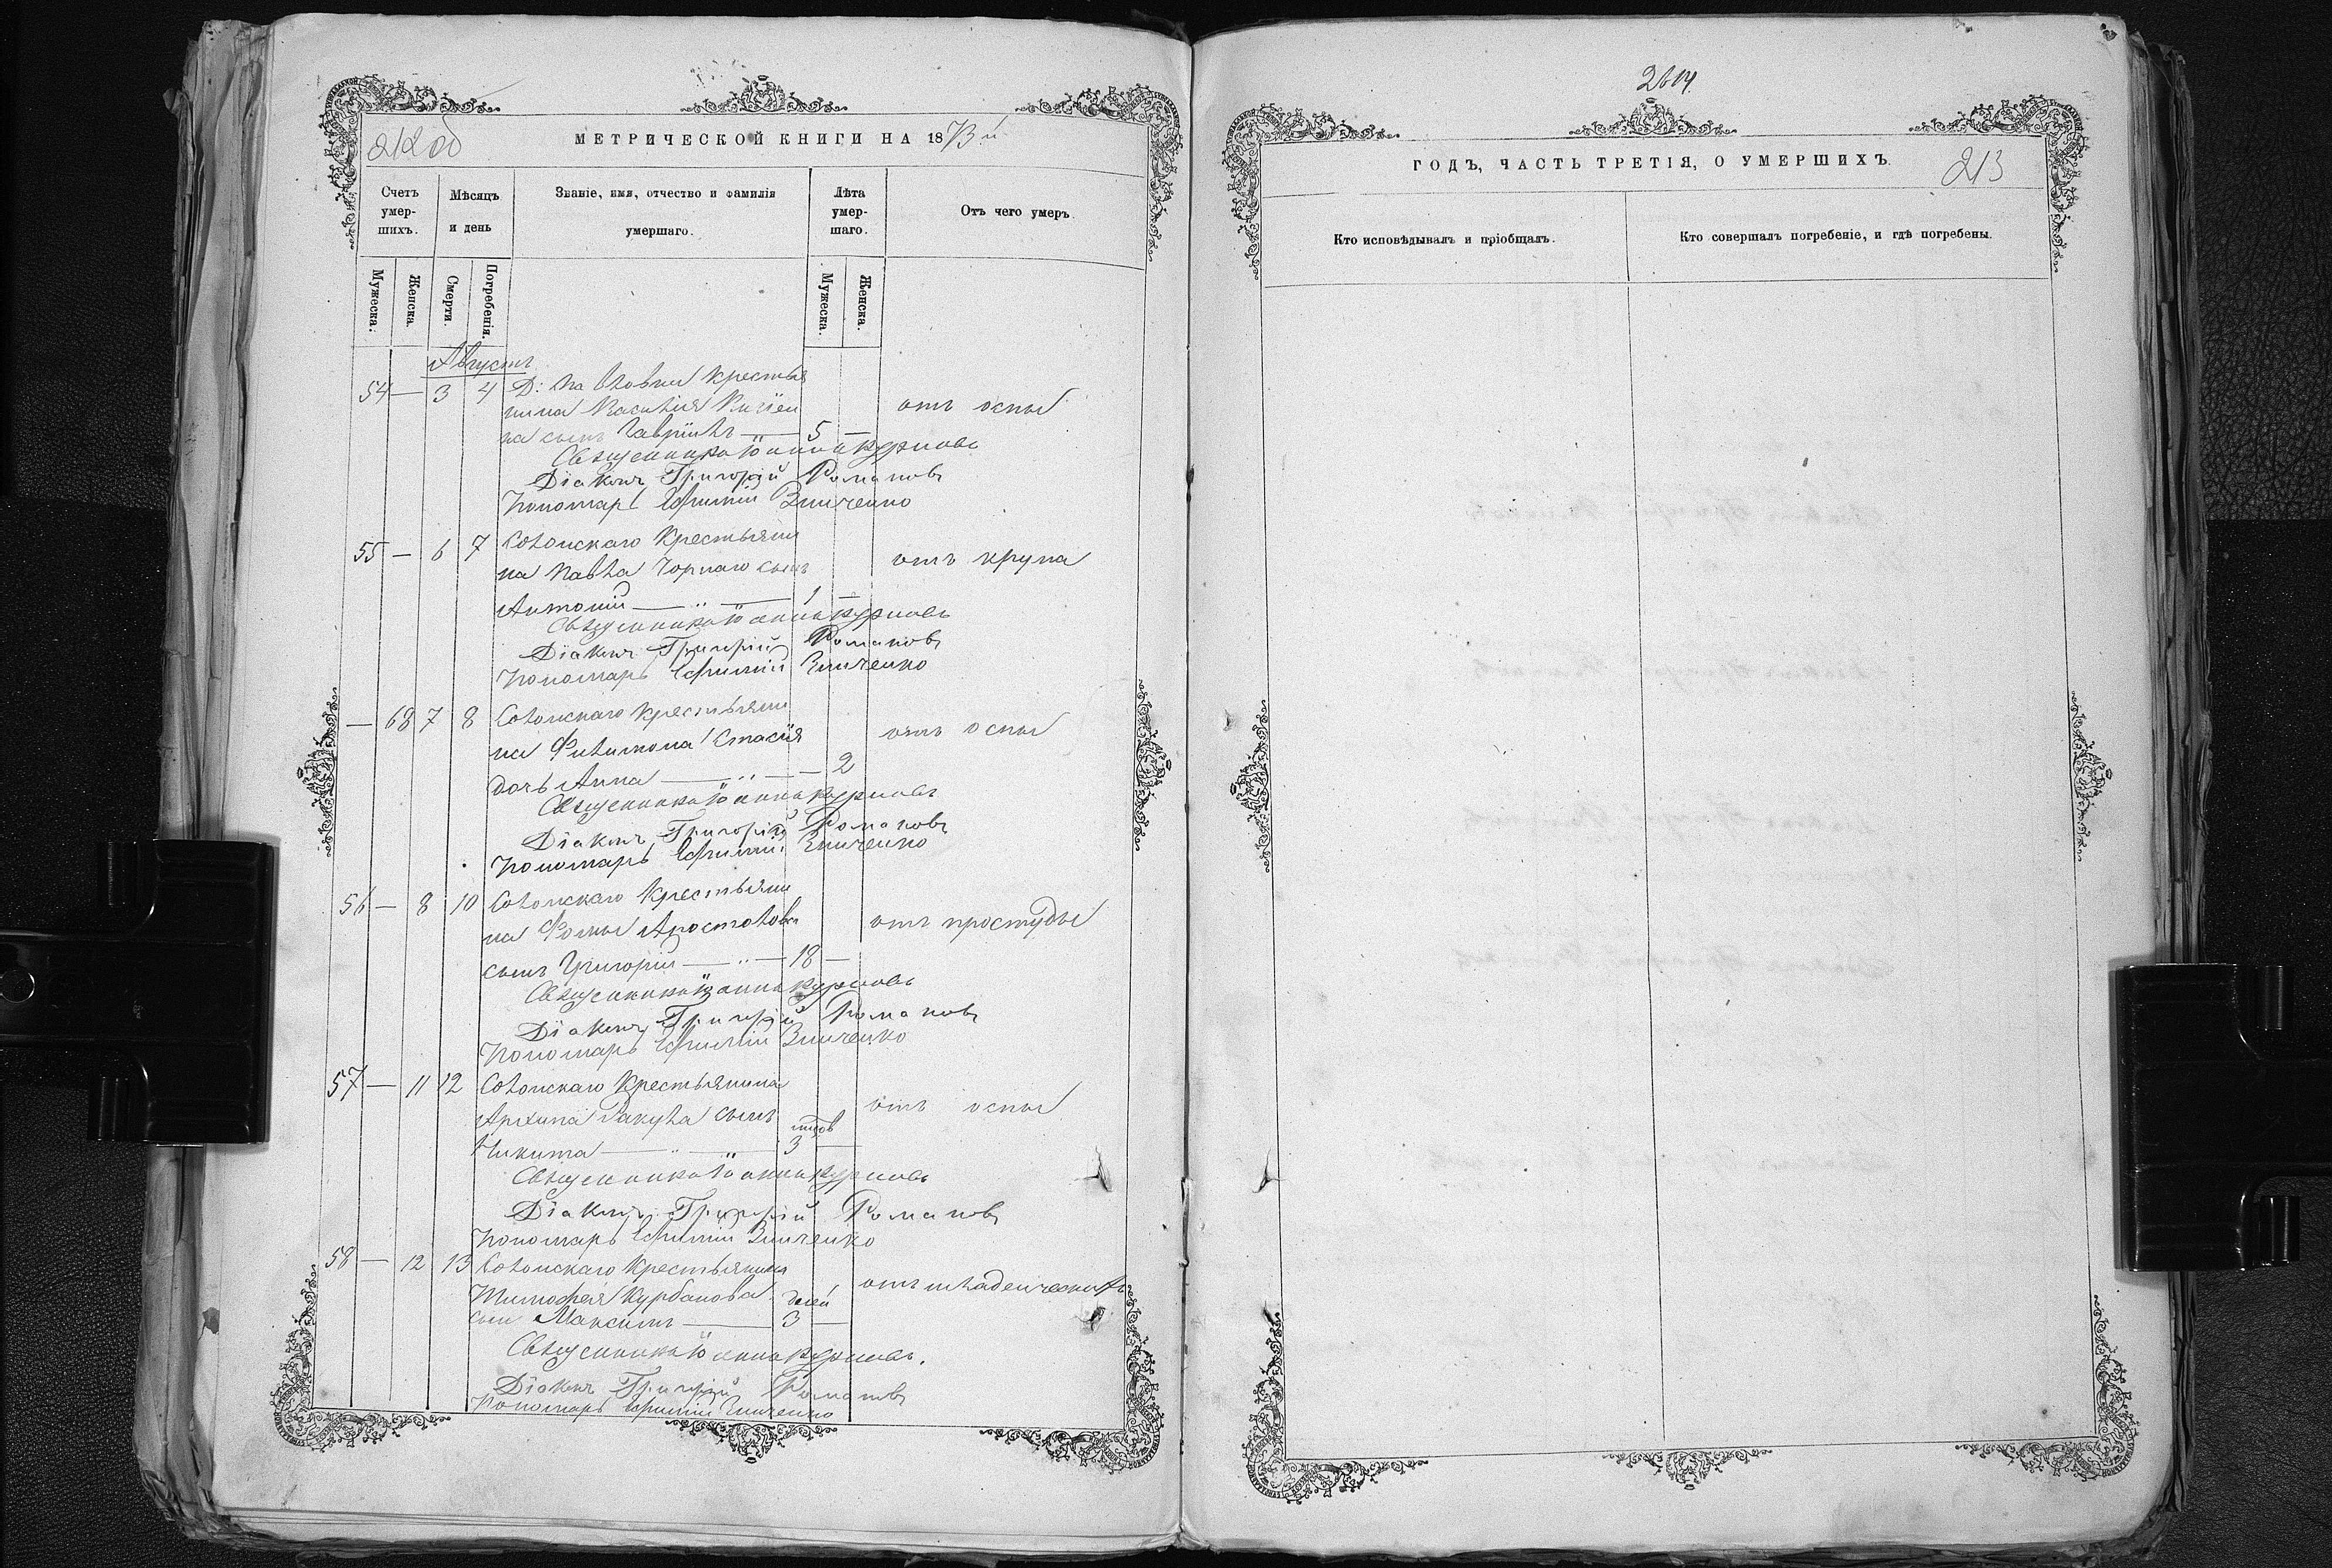 212 об
МЕТРИЧЕСКОЙ КНИГИ НА 1873й
Счетъ умер-шихъ.
Мѣсяцъ и день
Званіе, имя, отчество и фамилія умершаго.
Лѣта умер-шаго.
Отъ чего умеръ
Мужеска.
Женска.
Смерти.
Погребенія.
Мужеска.
Женска.
Августъ
54 — 3 4 Д: Павловки Крестья
нина Василія
на сынъ Гавріилъ — 5 — отъ оспы
Священникъ Іоаннъ Куриловъ
Діаконъ Григорій Романовъ
Пономарь Ефимій Зинченко
55 — 6 7 Солонскаго Крестьяни
на Павла Чорнаго сынъ отъ крупа
Антоній — „ — 1 —
Священникъ Іоаннъ Куриловъ
Діаконъ Григорій Романовъ
Пономарь Ефимій Зинченко
— 68 7 8 Солонскаго Крестьяни
на Филимона Стасія отъ оспы
дочь Анна — „ — 2
Священникъ Іоаннъ Куриловъ
Діаконъ Григорій Романовъ
Пономарь Ефимій Зинченко
56 — 8 10 Солонскаго Крестьяни
на Фомы Апостолова отъ простуды
сынъ Григорій — „ — 18 —
Священникъ Іоаннъ Куриловъ
Діаконъ Григорій Романовъ
Пономарь Ефимій Зинченко
57 — 11 12 Солонскаго Крестьянина
Архипа Ракула сынъ отъ оспы
Никита — „ — 3 —
Священникъ Іоаннъ Куриловъ
Діаконъ Григорій Романовъ
Пономарь Ефимій Зинченко
58 — 12 13 Солонскаго Крестьянина
Тимофея Курбанова дней отъ младенческихъ
сынъ Максимъ — 3 —
Священникъ Іоаннъ Куриловъ.
Діаконъ Григорій Романовъ
Пономарь Ефимій Зинченко
ГОДЪ, ЧАСТЬ ТРЕТІЯ, О УМЕРШИХЪ.
213
Кто исповѣдывалъ и пріобщалъ.
Кто совершалъ погребеніе, и гдѣ погребены.